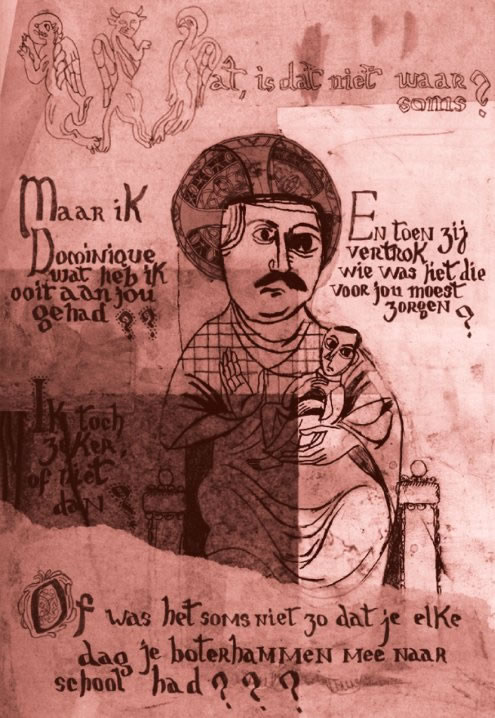 Wat, is dat niet waar
soms?
Maar ik
Dominique
wat heb ik
ooit aan jou
gehad??
En toen zij
vertrok
wie was het die
voor jou moest
zorgen?
Ik toch
zeker,
of niet
dan?
Of was het soms niet zo dat je elke
dag je boterhammen mee naar
school had???